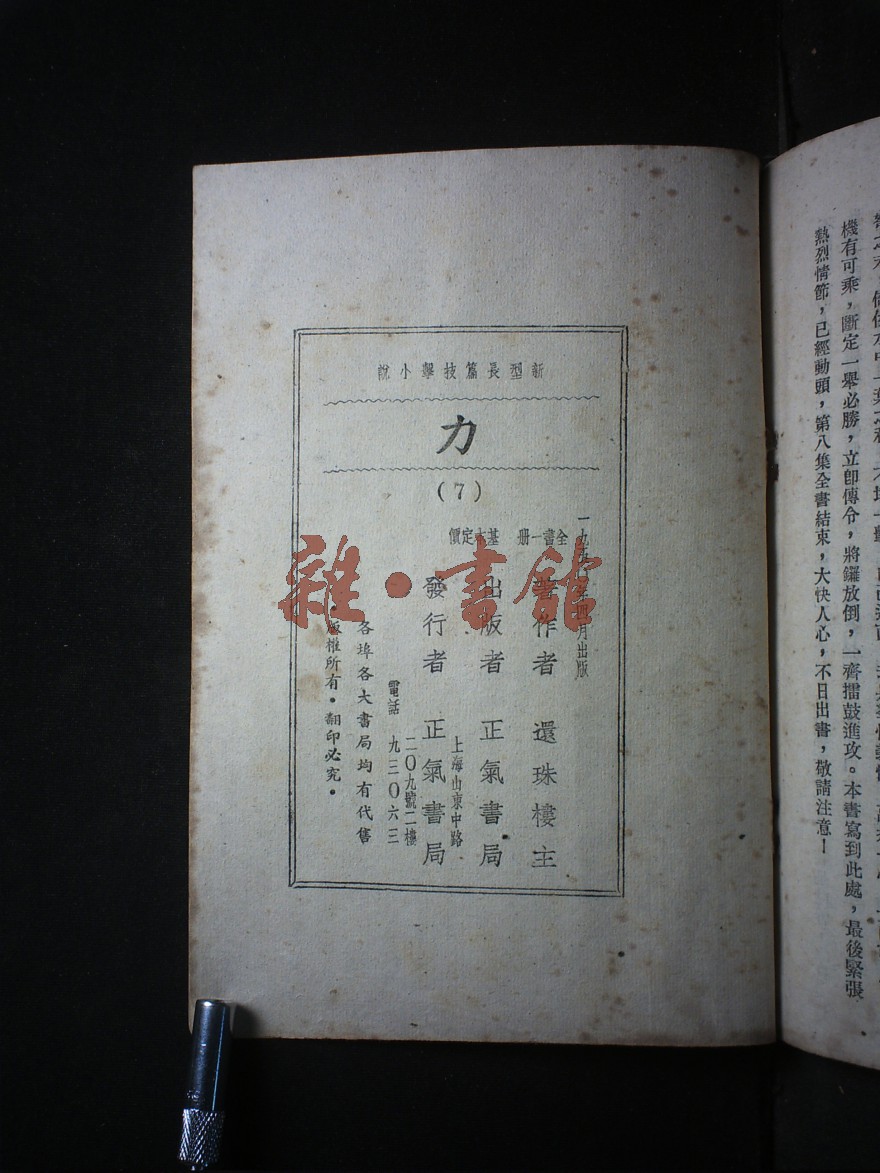 新型長篇技擊小說
力
(7)
一九五〇年四月出版
全書一冊　基本定價
著作者　還珠樓主
出版者　正氣書局
上海山東中路
發行者　正氣書局
二〇九號二樓
電話　九三〇六三
各埠各大書局均有代售
版權所有・翻印必究・
雜・書館
機有可乘，斷定一舉必勝，立卽傳令，將鑼放倒，一齊擂鼓進攻。本書寫到此處，最後緊張
熱烈情節，已經動頭，第八集全書結束，大快人心，不日出書，敬請注意！